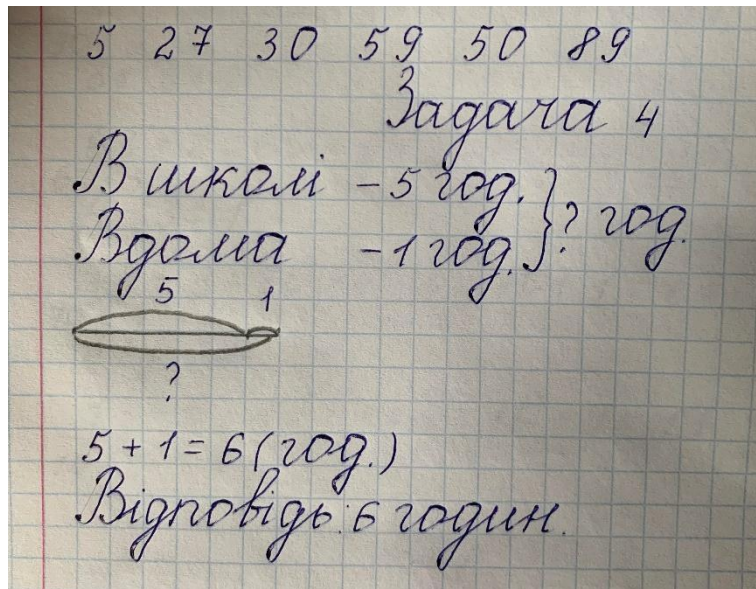 5 27 30 59 50 89
Задача 4
В школі – 5 год. } ? год.
Вдома – 1 год.
5 1
?
5 + 1 = 6 (год.)
Відповідь: 6 годин.